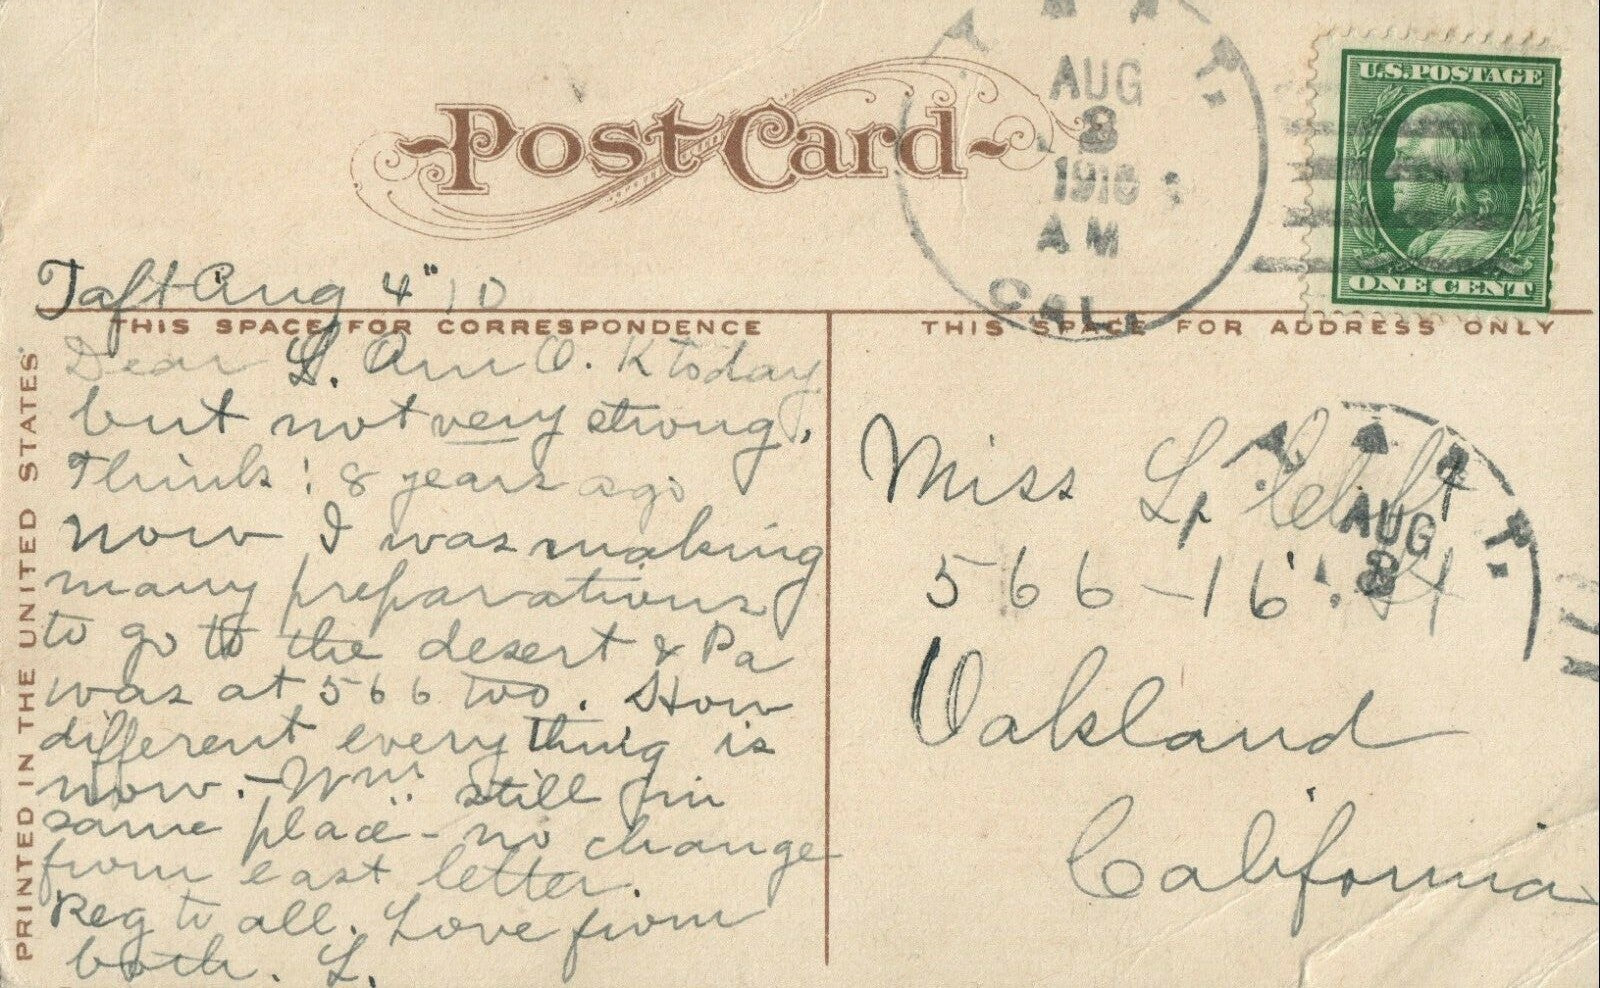 Post Card
TAFT.
AUG
1910
AM
CAL.
U.S. POSTAGE
ONE CENT
Taft Aug 4" 10
THIS SPACE FOR CORRESPONDENCE
THIS SPACE FOR ADDRESS ONLY
PRINTED IN THE UNITED STATES
Dear L. Am O. K today
but not very strong.
Think! 8 years ago
now I was making
many preparations
to go to the desert & Pa
was at 566 too. How
different every thing is
now. - Wm. still in
same place - no change
from last letter.
Reg to all. Love from
both. L.
TAFT.
AUG
Miss L. Clift
566 - 16 St
Oakland
California